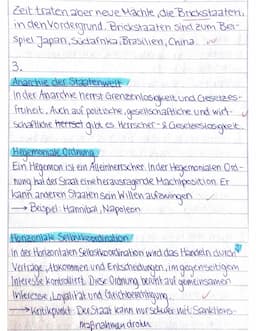 Zeit traten aber neue Mächte, die Brickstaaten,
in den Vordergrund. Brickstaaten sind zum Bei-
spiel Japan, Südafrika, Brasilien, China.
3.
Anarchie der Staatenwelt
In der Anarchie herrst Grenzenlosigkeit und Gesetzes-
freiheit. Auch auf politische, gesellschaftliche und wirt-
schaftliche herrscd gibt es Herrscher- & Gesetzeslosigkeit.
Hegemoniale Ordnung
Ein Hegemon ist ein Alleinherrscher. In der Hegemonialen Ord-
nung hat der Staat eine herausragende Machtposition. Er
kann anderen Staaten sein Willen aufzwingen
→ Beispiel: Hannibal, Napoleon
Horizontale Selbstkoordination
In der Horizontalen Selbstkoordination wird das Handeln durch
Verträge, Abkommen und Entscheidungen, im gegenseitigem
Interesse kontrolliert. Diese Ordnung beruht auf gemeinsamen
Interesse, Loyalität und Gleichberechtigung.
→ Kritikpunkt: Der Staat kann nur schwer mit Sanktions-
maßnahmen drohen